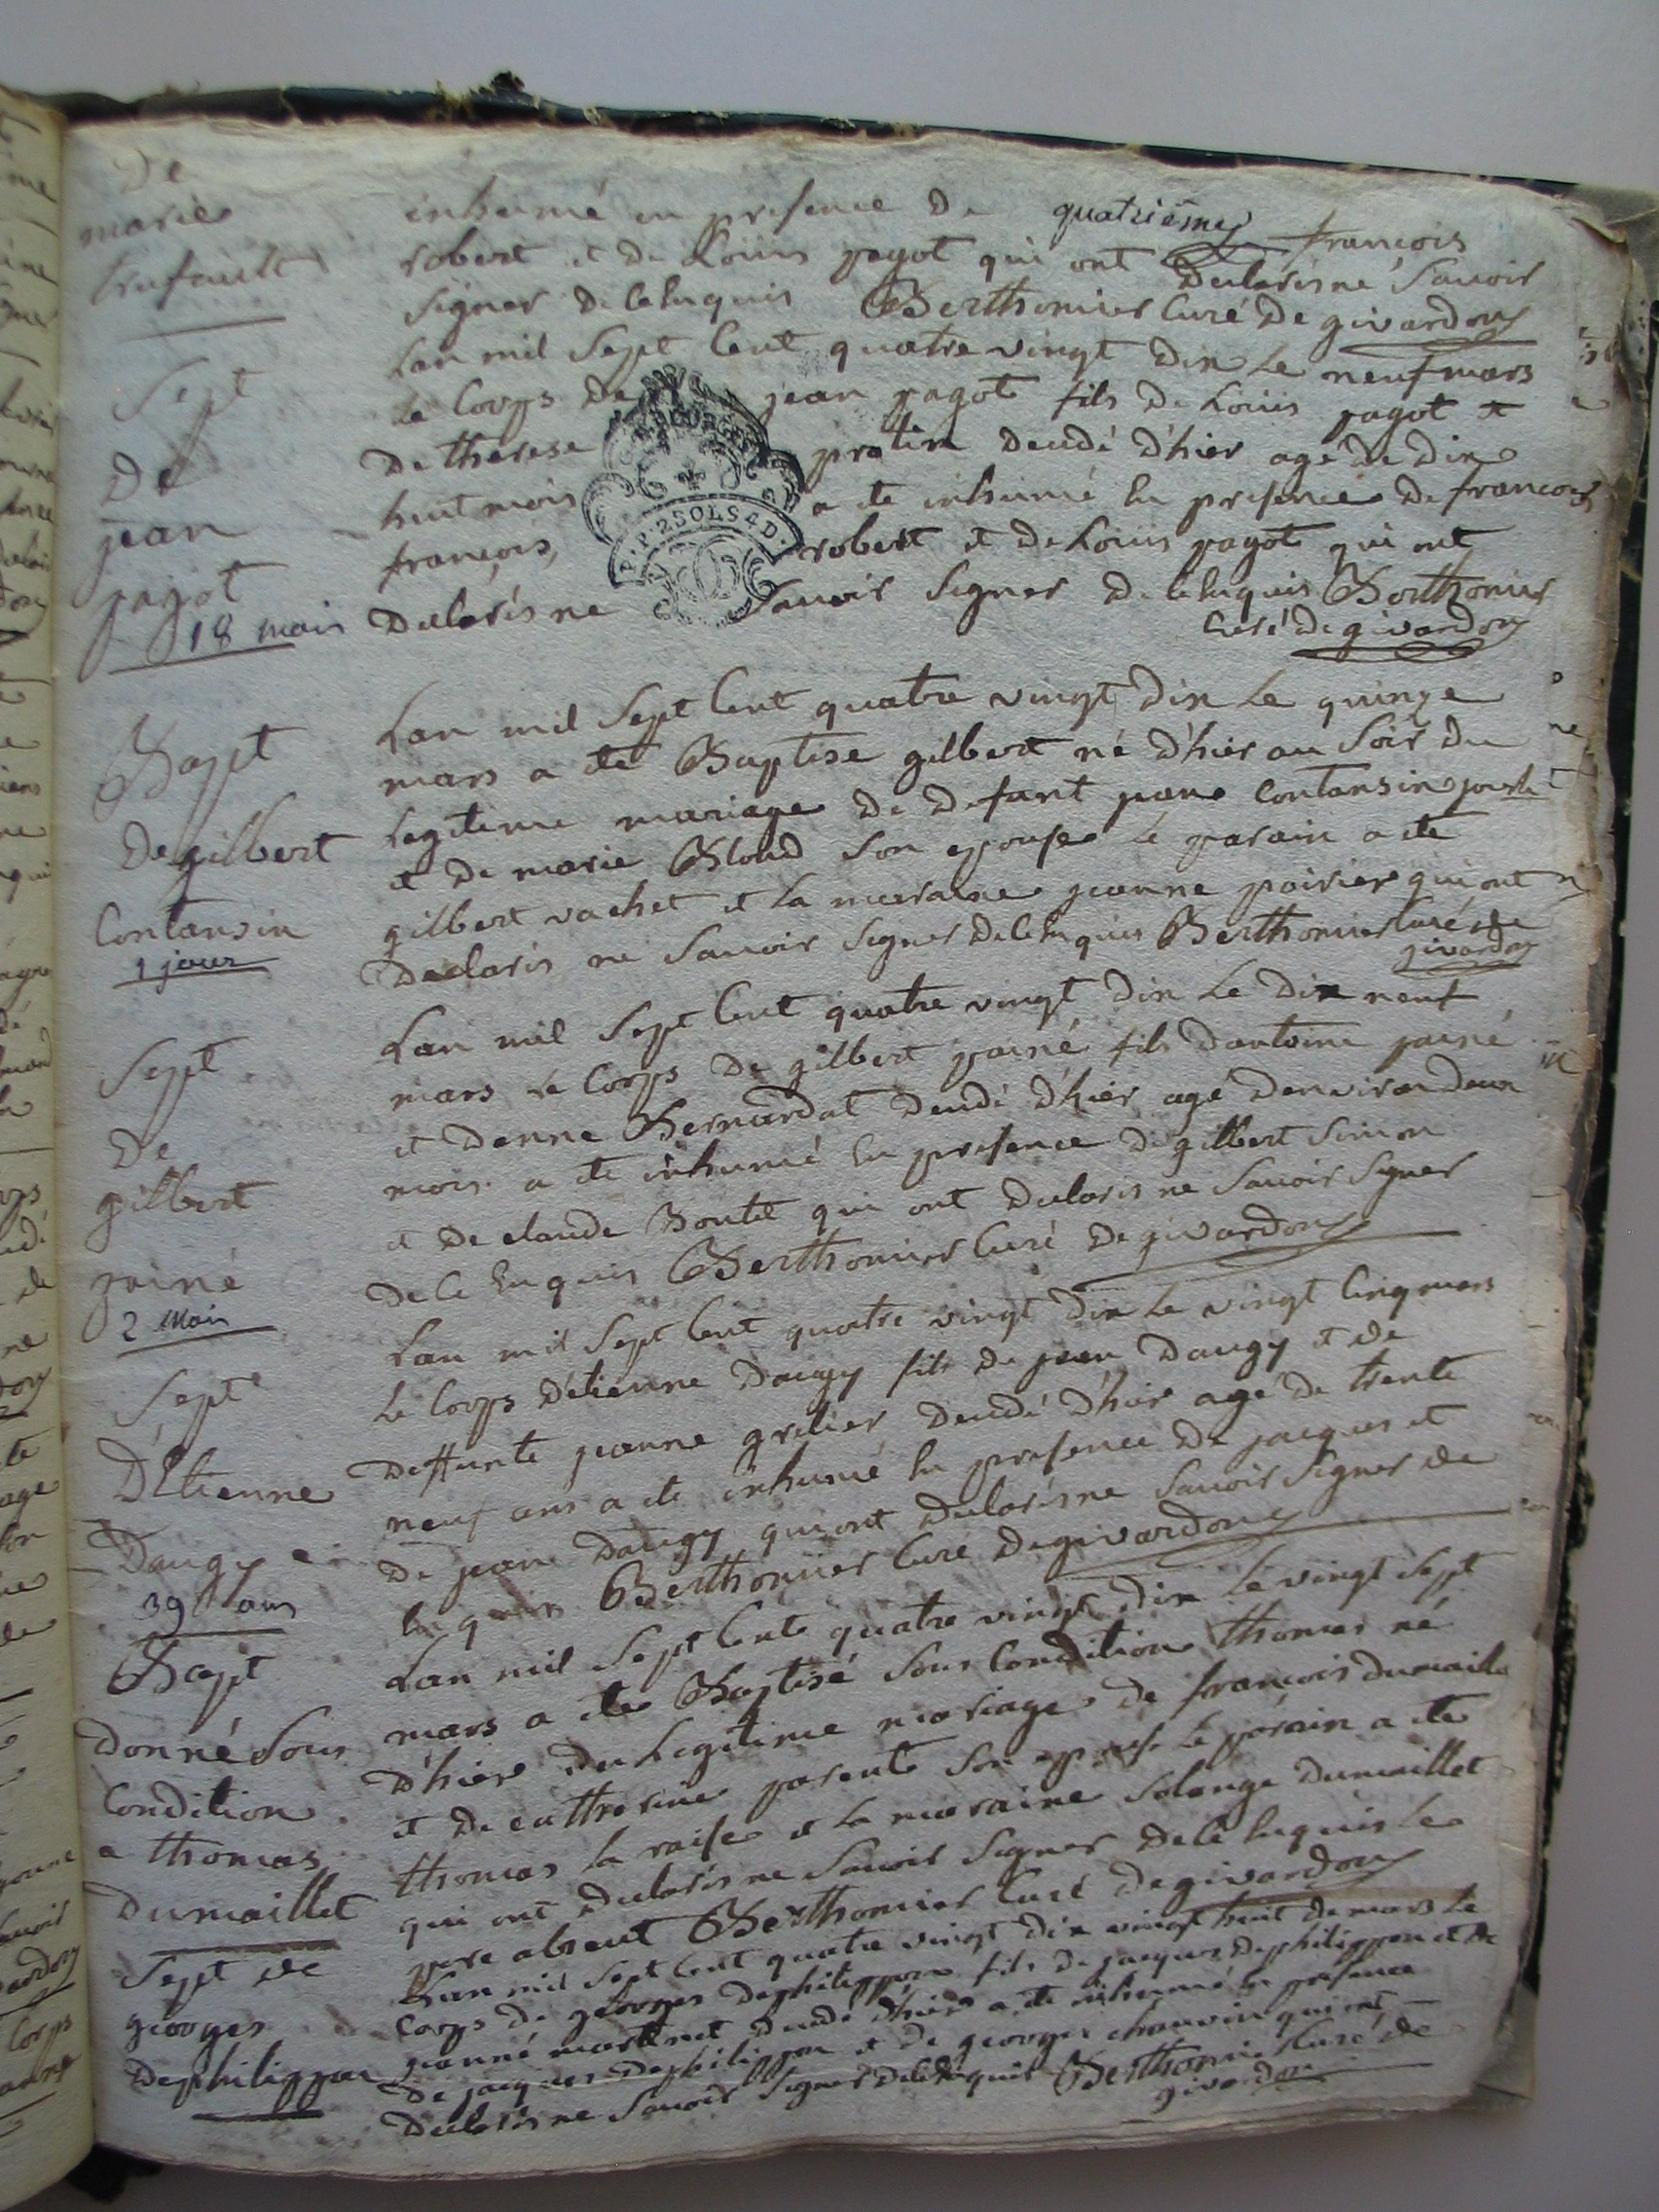 De
marie
trufault
quatrième
inhumé en presence De françois
robert et De Loüis pagot qui ont Declarés ne Savoir
Signer De ce Enquis Berthomier Curé De givardon
Sept
De
jean
pagot
18 mois
Lan mil Sept Cent quatre vingt Dix Le neuf mars
Le Corps De jean pagot fils De Loüis pagot et
De therese pratin Decedé D'hier agé de Dix
huit mois a ete inhumé En presence De françois
françois, robert et De Louis pagot qui ont
Declarés ne Savoir Signer De ce Enquis Berthomier
Curé De givardon
P.P. 2 SOLS 4 D.
Bapt
De gilbert
Contansin
1 jour
Lan mil Sept Cent quatre vingt Dix Le quinze
mars a ete Baptise gilbert né D'hier au Soir Du
Legitime mariage De Defunt jean Contansin
et De marie Blond Son epouse Le parain a ete
gilbert vachet et La maraine jeanne poirier qui ont
Declarés ne Savoir Signer De ce Enquis Berthomier Curé de
givardon
Sept
De
gilbert
jainé
2 mois
Lan mil Sept Cent quatre vingt Dix Le Dix neuf
mars Le Corps De gilbert jainé fils Dantoine jainé
et Denne Bernardat Decedé D'hier agé Denviron Deux
mois a ete inhumé En presence De gilbert Simon
et De claude Boutet qui ont Declarés ne Savoir Signer
De ce Enquis Berthomier Curé De givardon
Sept
D'Etienne
Daugy
39 ans
Lan mil Sept Cent quatre vingt Dix Le vingt Cinq mars
Le Corps D'etienne Daugy fils De jean Daugy et de
Deffunte jeanne grelier Decedé D'hier agé de trente
neuf ans a ete inhumé En presence De jacques et
De jean Daugy qui ont Declarés ne Savoir Signer de
ce Enquis Berthomier Curé De givardon
Bapt
Donné Sous
Condition
a thomas
Dumaillet
Lan mil Sept Cent quatre vingt Dix Le vingt Sept
mars a ete Baptisé Sous Condition thomas né
D'hier Du Legitime mariage de françois Dumaillet
et De catherine parente Son epouse Le parain a ete
thomas La raise et La maraine Solange Dumaillet
qui ont Declarés ne Savoir Signer De ce Enquis Le
pere absent Berthomier Curé De givardon
Sept de
georges
Dephilippon
Lan mil Sept Cent quatre vingt Dix vingt huit De mars Le
Corps De georges Dephilippon fils De jacques Dephilippon et De
jeanne martinet Decedé D'hier a ete inhumé En presence
De jacques Dephilippon et De georges chauvin qui ont
Declarés ne Savoir Signer De ce Enquis Berthomier Curé de
givardon